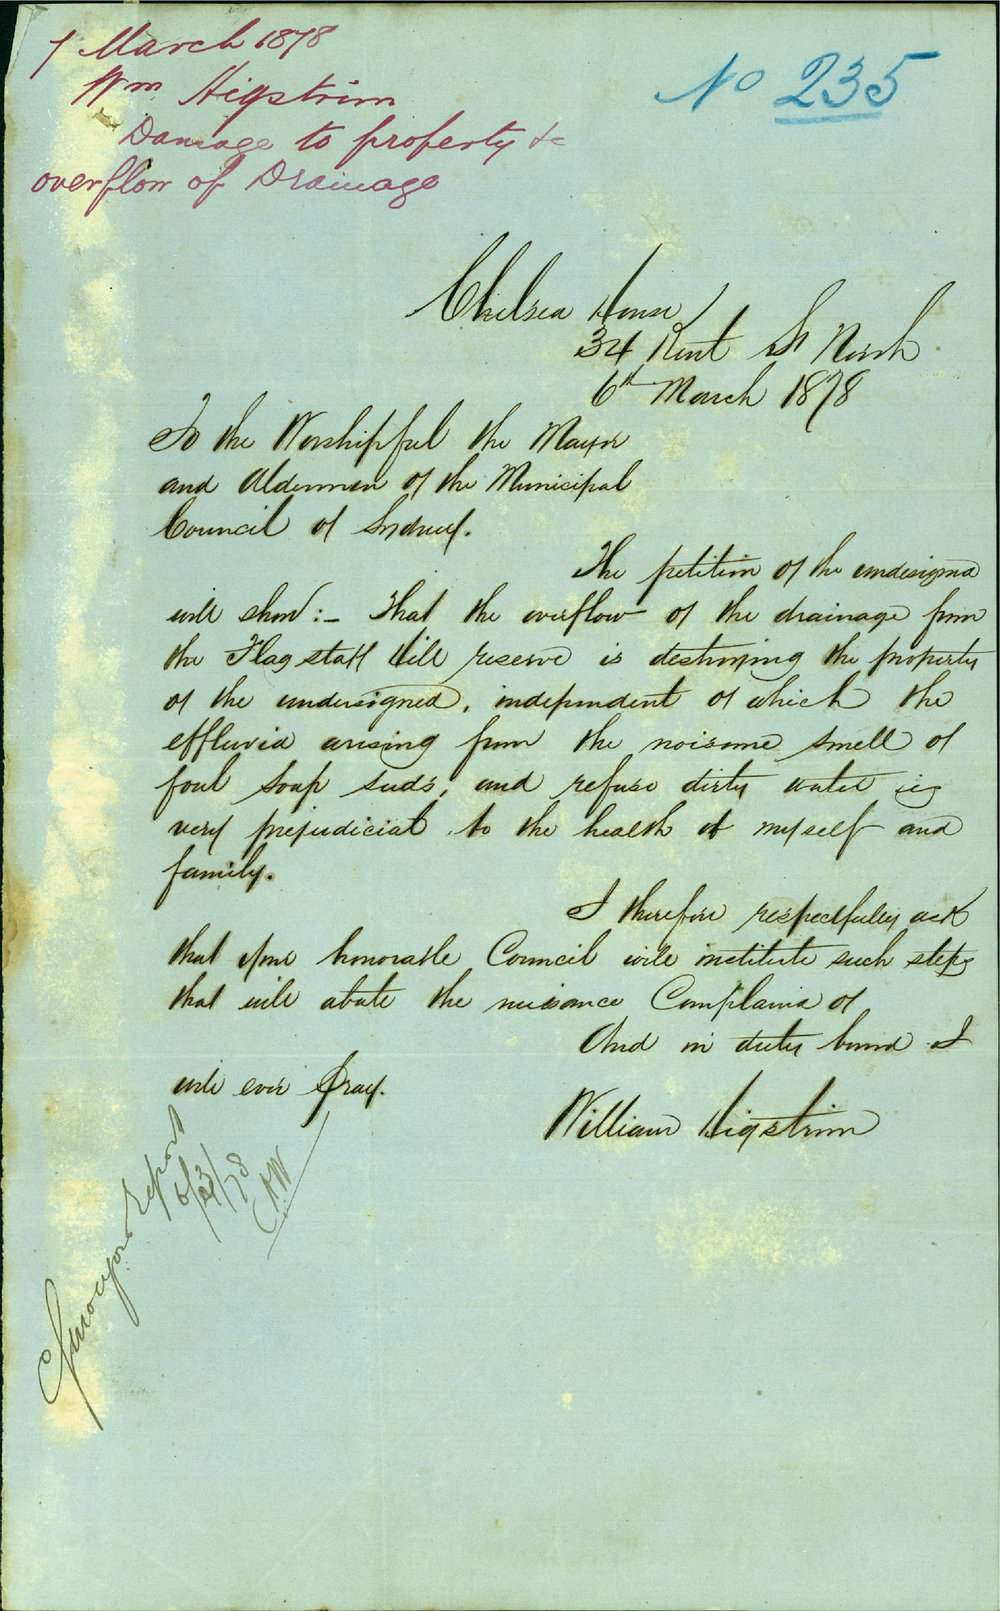 7 March 1878
Wm Higstrim
Damage to property &c
overflow of Drainage
No 235
Chelsea House
34 Kent St North
6th March 1878
To the Worshipful the Mayor
and Aldermen of the Municipal
Council of Sydney.
The petition of the undersigned
will show :- That the overflow of the drainage from
the Flagstaff Hill reserve is destroying the property
of the undersigned, independent of which the
effluvia arising from the noisome smell of
foul soap suds, and refuse dirty water is
very prejudicial to the health of myself and
family.
I therefore respectfully ask
that your honorable Council will institute such steps
that will abate the nuisance Complained of
And in duty bound I
will ever Pray.
William Higstrim
Surveyors report
6/3/78